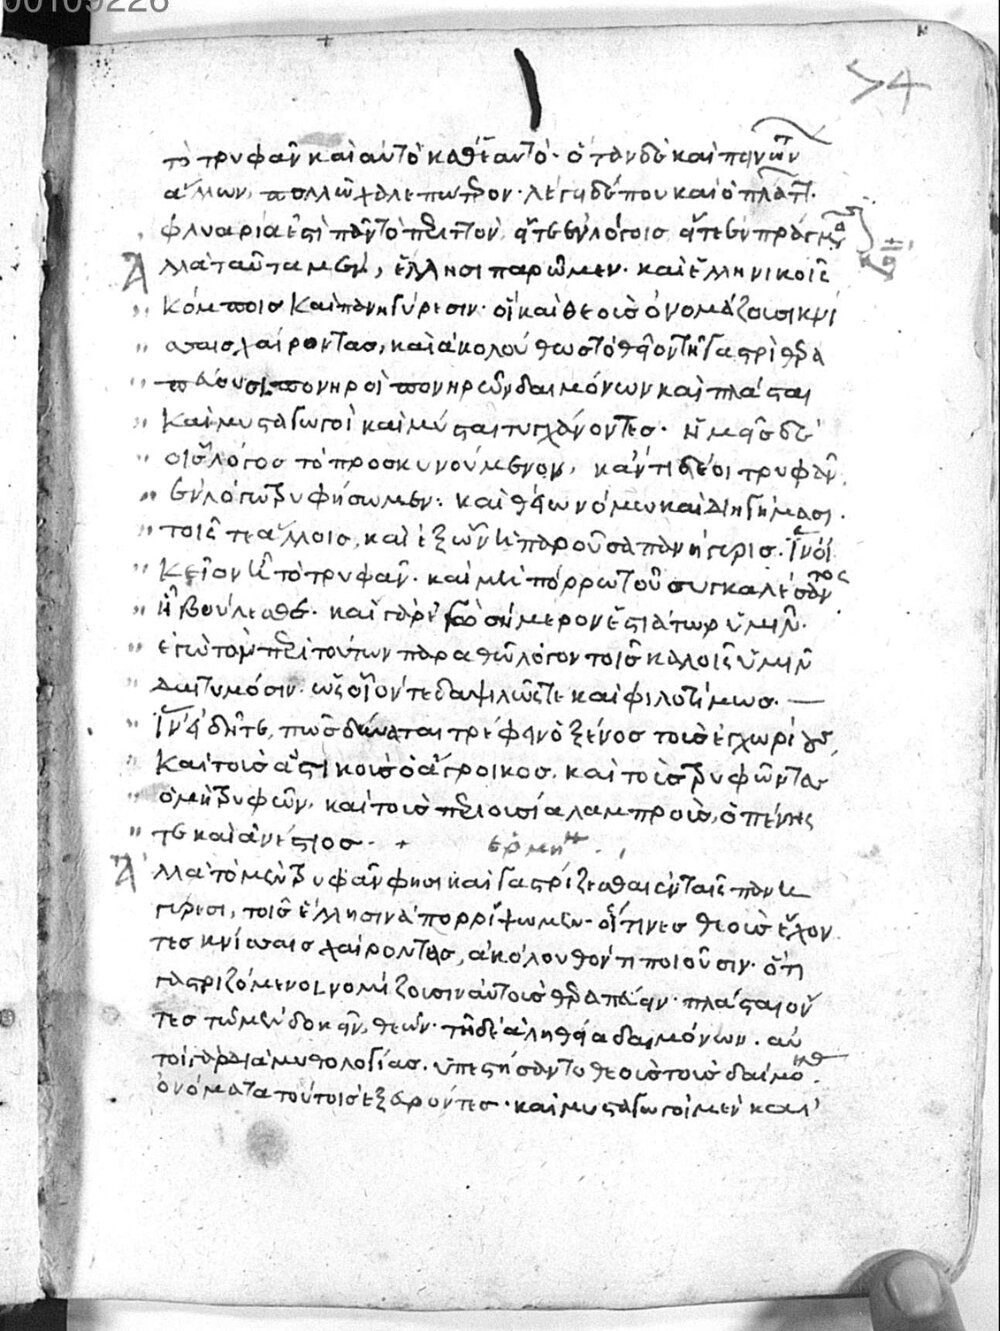 00109226
74
τὸ τρυφᾶν καὶ αὐτὸ καθ' ἑαυτό· ὅταν δὲ καὶ πεινώντων
ἄλλων, πολλῷ χαλεπώτερον· λέγει δέ που καὶ ὁ πλάτ
φλυαρία ἐστὶ πᾶν τὸ περιττὸν, ἄτε ἐν λόγοις ἄτε ἐν πράγμ
Ἀλλὰ ταῦτα μὲν, ἕλλησι παρῶμεν· καὶ ἑλληνικοῖς
κόμποις καὶ πανηγύρεσιν· οἳ καὶ θεοὺς ὀνομάζουσι κνί
σαις χαίροντας, καὶ ἀκολούθως τὸ θεῖον τῇ γαστρὶ θερα
πεύουσι, πονηροὶ πονηρῶν δαιμόνων καὶ πλάσται
καὶ μυσταγωγοὶ καὶ μύσται τυγχάνοντες· ἡμᾶς δὲ
οἷς λόγος τὸ προσκυνούμενον, κἄν τι δέοι τρυφᾶν,
ἐν λόγῳ τρυφήσωμεν· καὶ θείῳ νόμῳ καὶ διηγήμασι·
τοῖς τε ἄλλοις, καὶ ἐξ ὧν ἡ παροῦσα πανήγυρις· ἵν' οἰ
κεῖον ᾖ τὸ τρυφᾶν· καὶ μὴ πόρρω τοῦ συγκαλέσαντος
ἢ βούλεσθε· καὶ γὰρ ἐγὼ σήμερον ἑστιάτωρ ὑμῖν·
ἐγὼ τὸν περὶ τούτων παραθῶ λόγον τοῖς καλοῖς ὑμῖν
δαιτυμόσιν· ὡς οἷόν τε δαψιλῶς τε καὶ φιλοτίμως·
ἵν' εἰδῆτε, πῶς δύναται τρέφειν ὁ ξένος τοὺς ἐγχωρίους,
καὶ τοὺς ἀστικοὺς ὁ ἄγροικος, καὶ τοὺς τρυφῶντας
ὁ μὴ τρυφῶν, καὶ τοὺς περιουσίᾳ λαμπροὺς, ὁ πένης
τε καὶ ἀνέστιος· + ἑρμη
Ἀλλὰ τὸ μὲν τρυφᾶν φησι καὶ γαστρίζεσθαι ἐν ταῖς πανη
γύρεσι, τοῖς ἕλλησιν ἀπορρίψωμεν· οἵτινες θεοὺς ἔχον
τες κνίσσαις χαίροντας, ἀκόλουθόν τι ποιοῦσιν· ὅτι
γαστριζόμενοι νομίζουσιν αὐτοὺς θεραπεύειν· πλάσται ὄν
τες τῶν μὲν δοκεῖν, θεῶν· τῇ δὲ ἀληθείᾳ δαιμόνων· αὐ
τοὶ γὰρ διὰ μυθολογίας, ὑπεστήσαντο θεοὺς τοὺς δαίμο
ὀνόματα τούτοις ἐξευρόντες· καὶ μυσταγωγοὶ μὲν καὶ